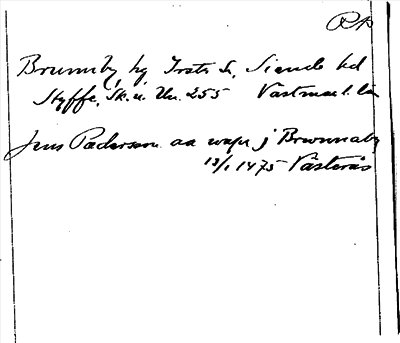 Rp
Brunnby, by, Irsta s., Siende hd
Styffe, Sk. u. Un. 255 Västmanl. län
Jens Pædersson aa wapn j Brwnnaby
13/1 1475 Västerås